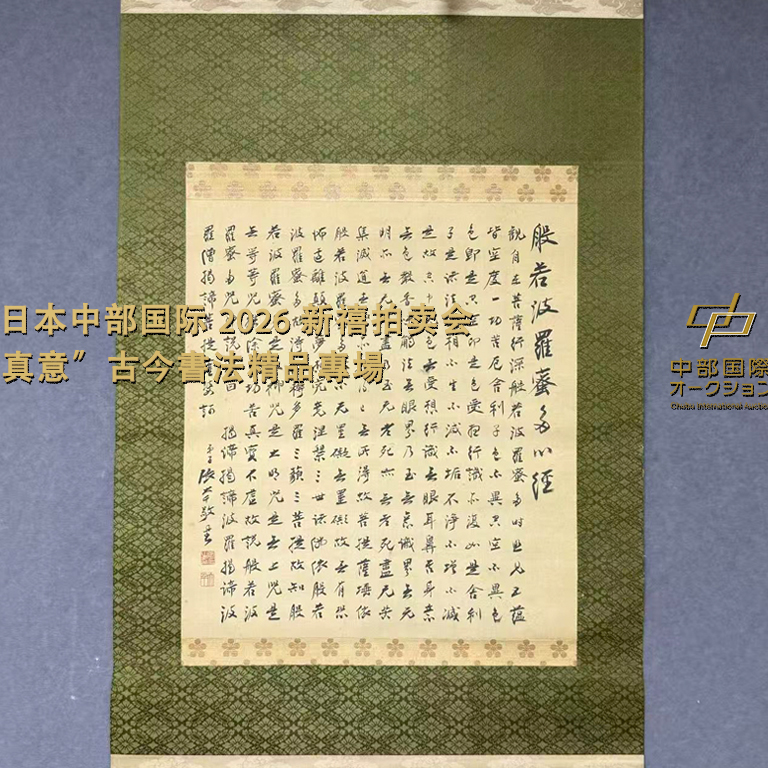 般若波羅蜜多心經
觀自在菩薩行深般若波羅蜜多時照見五蘊
皆空度一切苦厄舍利子色不異空空不異色
色即是空空即是色受想行識亦復如是舍利
子是諸法空相不生不滅不垢不淨不增不減
是故空中无色无受想行識无眼耳鼻舌身意
无色聲香味觸法无眼界乃至无意識界无无
明亦无无明盡乃至无老死亦无老死盡无苦
集滅道无智亦无得以无所得故菩提薩埵依
般若波羅蜜多故心无罣礙无罣礙故无有恐
怖遠離顛倒夢想究竟涅槃三世諸佛依般若
波羅蜜多故得阿耨多羅三藐三菩提故知般
若波羅蜜多是大神咒是大明咒是无上咒是
无等等咒能除一切苦真實不虛故說般若波
羅蜜多咒即說咒曰 揭諦揭諦波羅揭諦波
羅僧揭諦菩提薩婆訶
日本中部国际 2026 新禧拍卖会
真意”古今書法精品專場
中部国際
オークション
Chubu International Auction